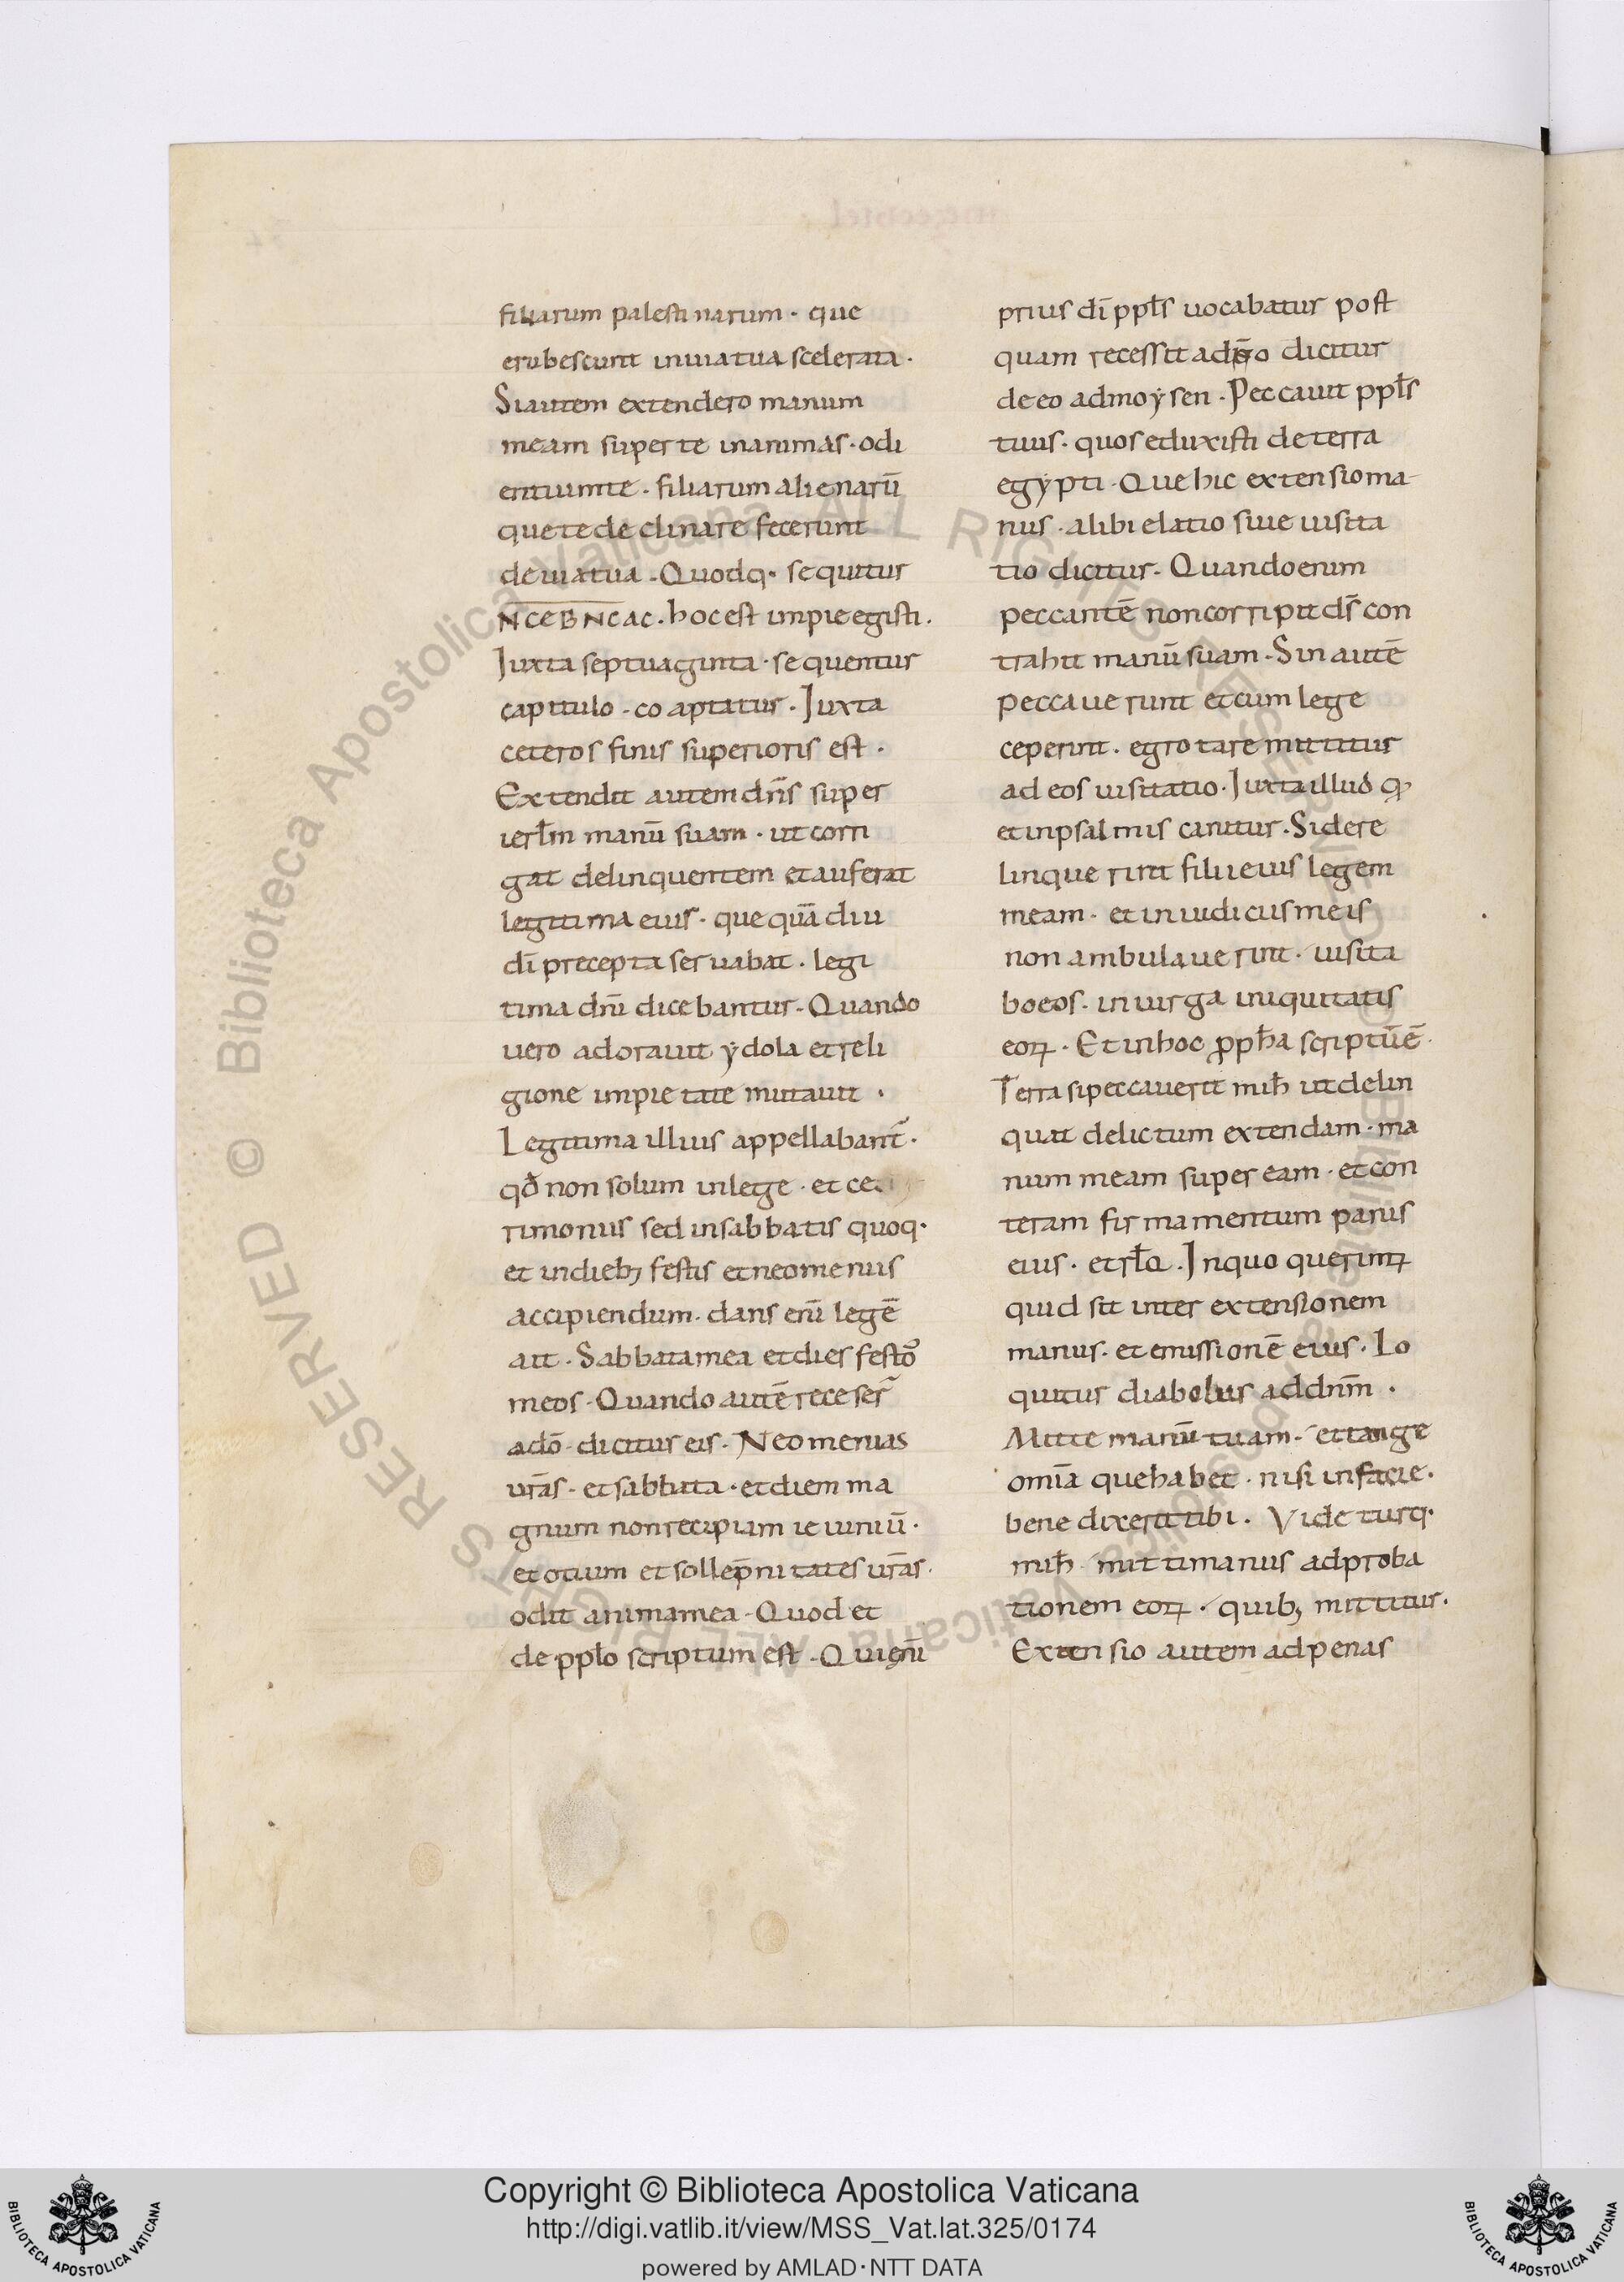 filiarum palestinarum · que
erubescunt inuiatua scelerata ·
Siautem extendero manum
meam super te inanimas · odi
entiumte · filiarum alienarū
quete declinare fecerunt
deuiatua · Quodq· sequitur
N̅C̅E̅B̅N̅C̅AC · hocest impieegisti ·
Juxta septuaginta · sequentur
capitulo · coaptatur · Juxta
ceteros finis superioris est ·
Extendit autem dn̄s super
ierłm manū suam · ut corri
gat delinquentem etauferat
legitima eius · que quādiu
dī precepta seruabat · legi
tima dn̄i dicebantur · Quando
uero adorauit ydola etreli
gione impietate mutauit ·
Legitima illius appellabant̄ ·
qđ non solum inlege · et ce
rimoniis sed insabbatis quoq·
et indieb; festis etneomeniis
accipiendum · dans enī legē
ait · Sabbatamea etdies festō
meos · Quando autē receser̄
adō · dicitur eis · Neomenias
ur̄as · etsabbata · etdiem ma
gnum nonrecipiam ieiuniū ·
etotium et sollep̄nitates ur̄as ·
odit animamea · Quod et
de pplo scriptum est · Quienī
prius dī ppłs uocabatur post
quam recessit addō dicitur
de eo admoysen · Peccauit ppłs
tuus · quos eduxisti deterra
egypti · Que hic extensioma
nus · alibi elatio siue uisita
tio dicitur · Quandoenim
peccantē noncorripit ds̄ con
trahit manū suam · Sin autē
peccauerunt etcum lege
ceperint · egrotare mittitur
ad eos uisitatio · Juxtaillud qđ
etinpsalmis canitur · Sidere
linquerint filiieius legem
meam · et iniudiciismeis
non ambulauerint · uisita
boeos · inuirga iniquitatis
eoꝝ · Etinhoc ꝓpħa scriptūē ·
Terra sipeccauerit miħ utdelin
quat delictum extendam · ma
num meam super eam · etcon
teram firmamentum panis
eius · etrłq · Inquo querimꝝ
quid sit inter extensionem
manus · et emissionē eius · Lo
quitur diabolus addnm̄ ·
Mitte manū tuam · ettange
omīa quehabet · nisi infacie ·
benedixerit tibi · Videturq·
miħ · mittimanus adproba
tionem eoꝝ · quib; mittitur ·
Extensio autem adpenas
Copyright © Biblioteca Apostolica Vaticana
http://digi.vatlib.it/view/MSS_Vat.lat.325/0174
powered by AMLAD·NTT DATA